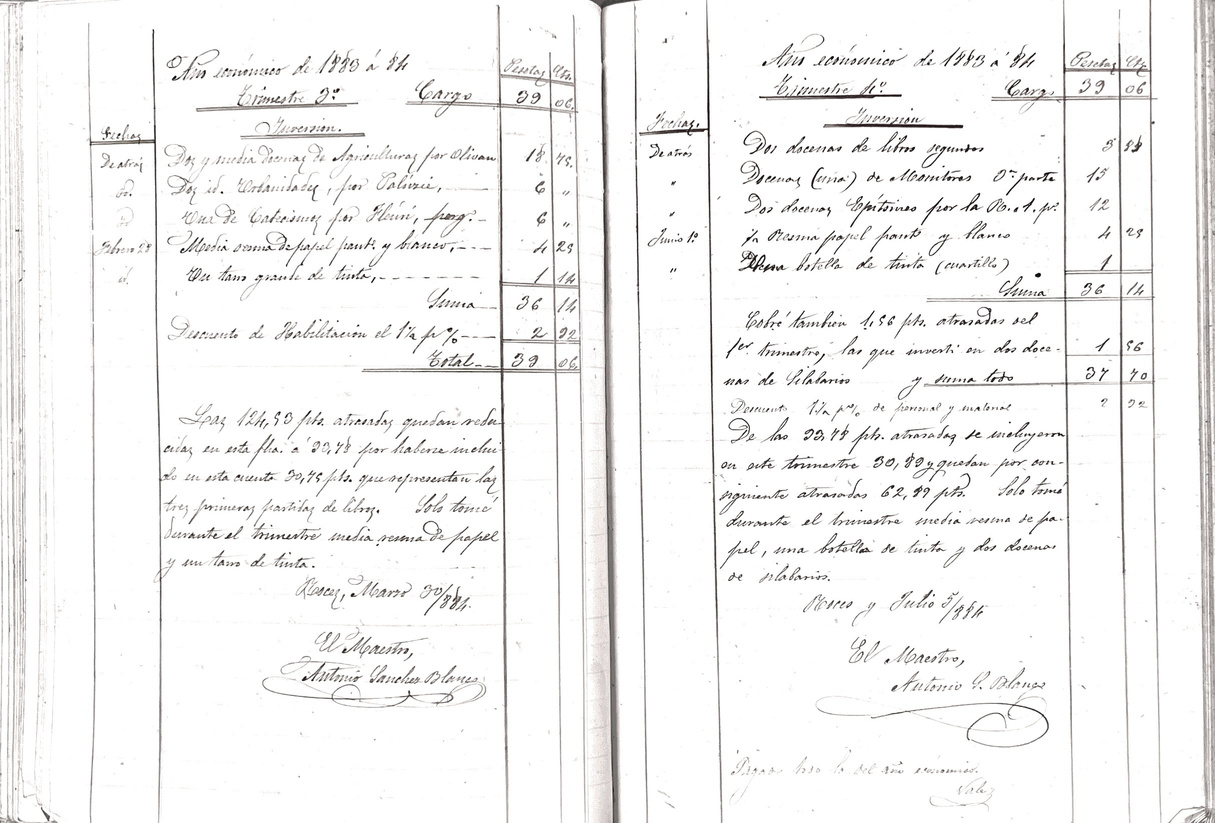 Año económico de 1883 á 84
Pesetas Cts.
Trimestre 3º Cargo 39 06
Inversion.
Fechas
De atrás Dos y media docenas de Agriculturas por Olivan 18 75
id. Dos id. Urbanidades, por Paluzie, 6 "
id. Una de Catecismos por Fleuri, perg. 6 "
Febrero 28 Media resma de papel paut. y blanco, 4 25
id. Un tarro grande de tinta, 1 14
Suma 36 14
Descuento de Habilitacion el 1½ p% 2 92
Total 39 06
Las 124,53 pts. atrasadas quedan redu-
cidas en esta fha. á 93,78 por haberse inclui-
do en esta cuenta 30,75 pts. que representan las
tres primeras partidas de libros. Solo tomé
durante el trimestre media resma de papel
y un tarro de tinta.
Roces, Marzo 30/884.
El Maestro,
Antonio Sanchez Blanco
Año económico de 1883 á 84
Pesetas Cts.
Trimestre 4º Cargo 39 06
Inversion
Fechas.
De atrás Dos docenas de libros segundos 3 89
" Docenas (una) de Monitores 3ª parte 15
" Dos docenas Epítomes por la R. A. 12
Junio 1º ½ Resma papel paut. y blanco 4 25
" Una botella de tinta (cuartillo) 1
Suma 36 14
Cobré tambien 1,56 pts. atrasadas del
1er trimestre, las que invertí en dos doce- 1 56
nas de Silabarios y suma todo 37 70
Descuento 1½ p% de personal y material 2 92
De las 93,78 pts. atrasadas se incluyeron
en este trimestre 30,89 y quedan por con-
siguiente atrasadas 62,89 pts. Solo tomé
durante el trimestre media resma de pa-
pel, una botella de tinta y dos docenas
de silabarios.
Roces y Julio 5/884
El Maestro,
Antonio S. Blanco
todo lo del año económico.